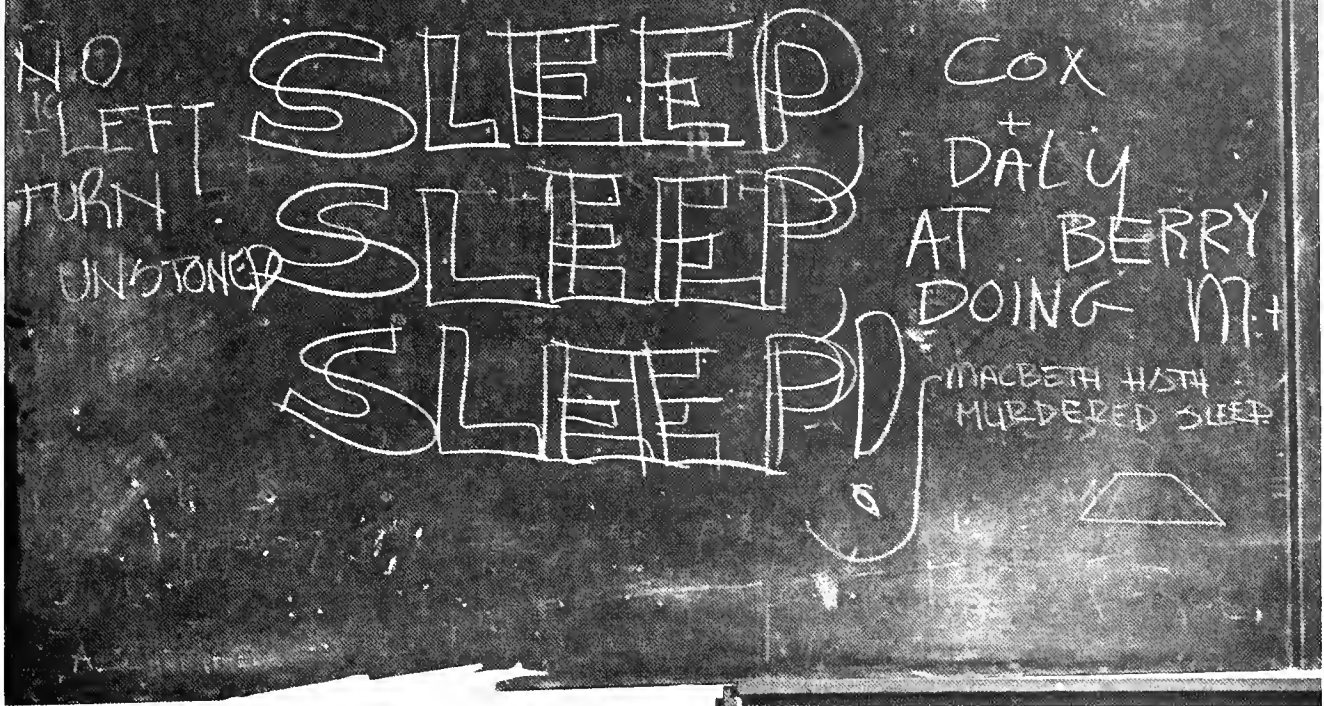 NO
LEFT
TURN
UNSTONED
SLEEP
SLEEP
SLEEP!
COX
+
DALY
AT BERRY
DOING M.t
MACBETH HATH
MURDERED SLEEP